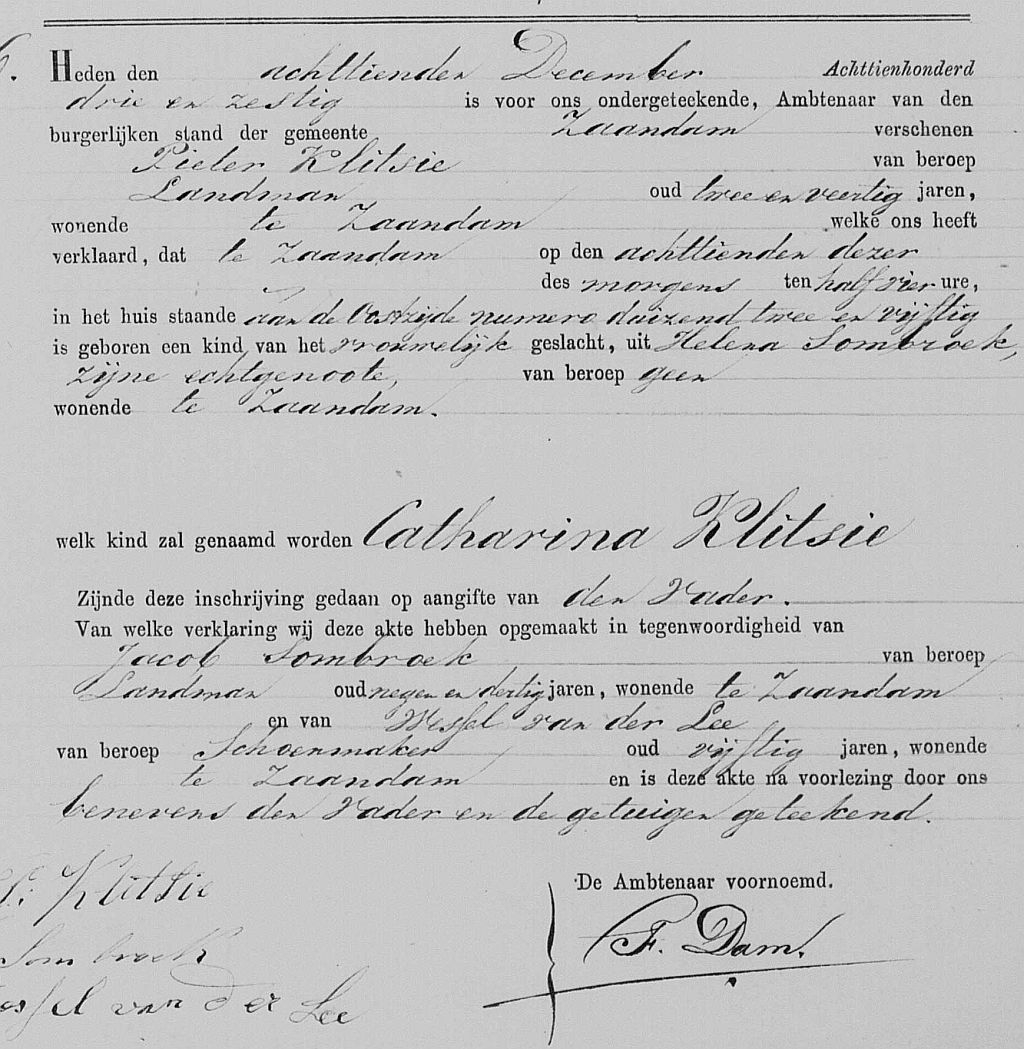 6.
Heden den achttienden December Achttienhonderd
drie en zestig is voor ons ondergeteekende, Ambtenaar van den
burgerlijken stand der gemeente Zaandam verschenen
Pieter Klitsie van beroep
Landman oud twee en veertig jaren,
wonende te Zaandam welke ons heeft
verklaard, dat te Zaandam op den achttienden dezer
des morgens ten half vier ure,
in het huis staande aan de Oostzijde numero duizend twee en vijftig
is geboren een kind van het vrouwelijk geslacht, uit Helena Sombroek,
zijne echtgenoote, van beroep geen
wonende te Zaandam.
welk kind zal genaamd worden Catharina Klitsie
Zijnde deze inschrijving gedaan op aangifte van den Vader.
Van welke verklaring wij deze akte hebben opgemaakt in tegenwoordigheid van
Jacob Sombroek van beroep
Landman oud negen en dertig jaren, wonende te Zaandam
en van Wessel van der Lee
van beroep Schoenmaker oud vijftig jaren, wonende
te Zaandam en is deze akte na voorlezing door ons
benevens den Vader en de getuigen geteekend.
De Ambtenaar voornoemd.
P. Klitsie
F. Dam.
Sombroek
essel van der Lee